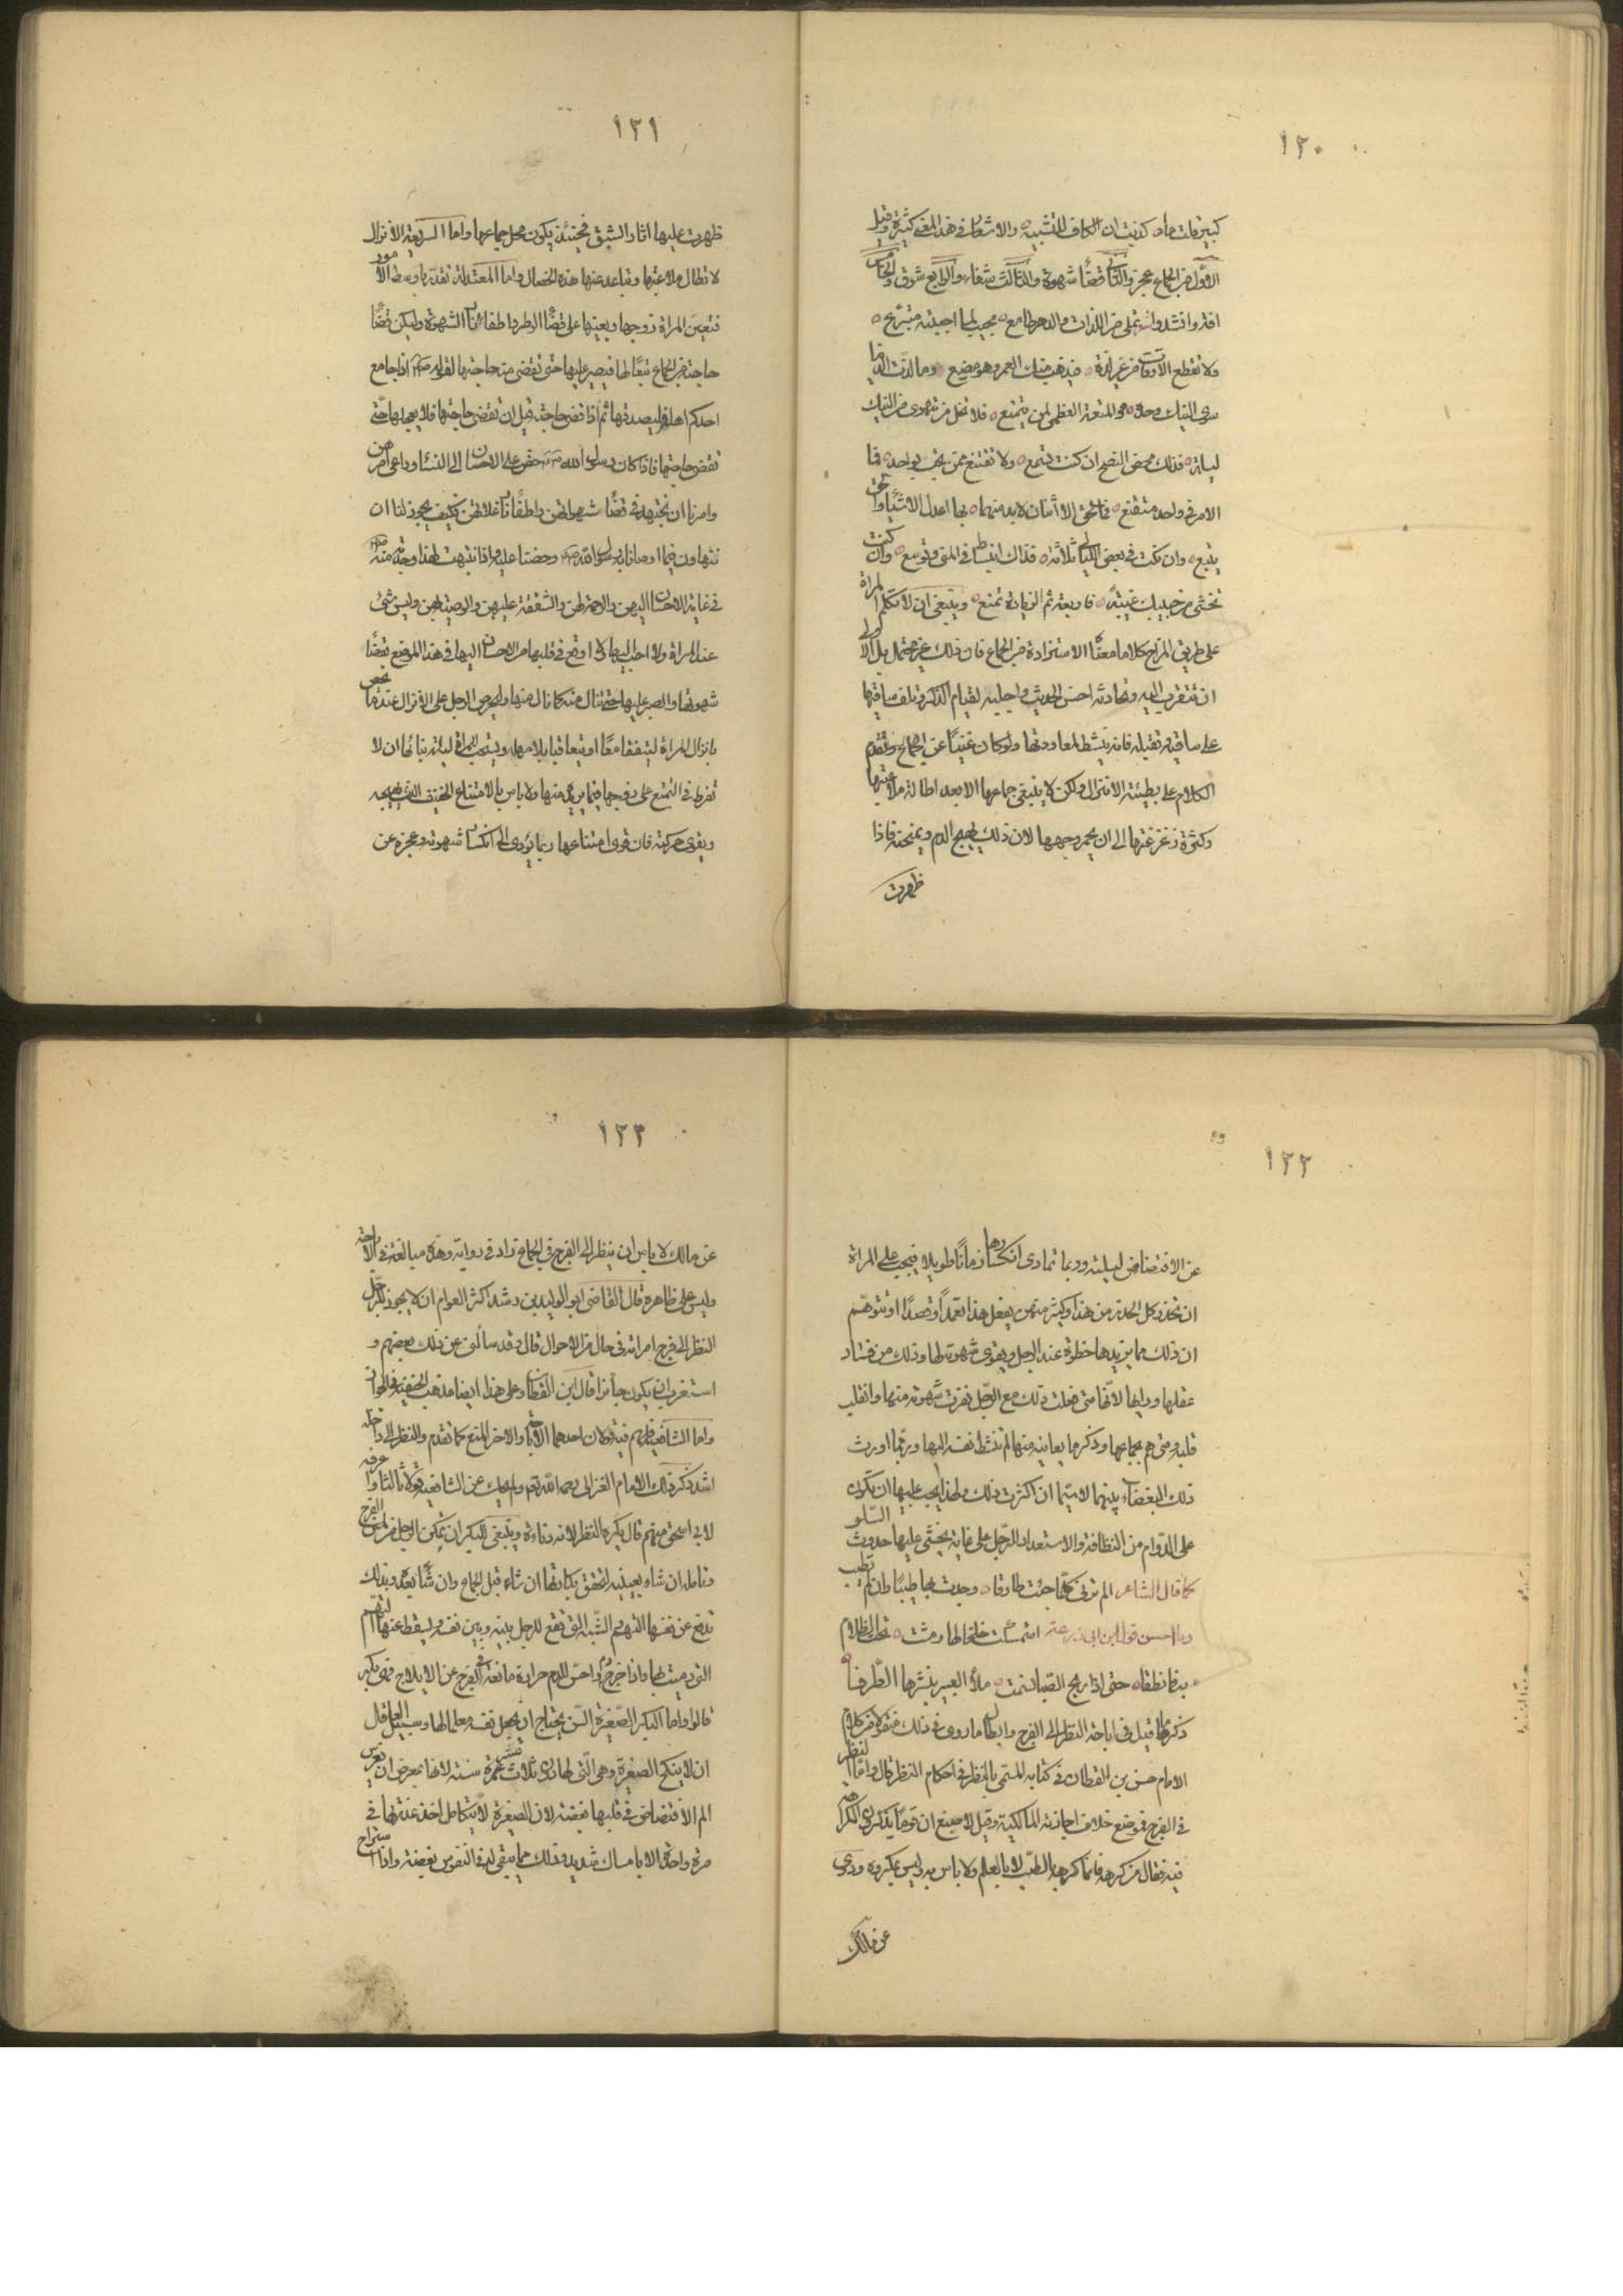 ١٢٠
كبير مات ماه كذبت ان الكاف للتشبيه والاشعار في هذا المعنى كثيرة وقيل
الاول من الجماع عجز والثاني قضاء شهوة والثالث شفاء والرابع شوق والخامس
افة وانشدوا تملى من اللذات والدهر طامع مجيب لما احببته متبرع
ولا تقطع الاوقات من غير لذة فيذهب منك العمر وهو مضيع وما لذت الدنيا
سوى النيك وحده هو المتعة العظمى لمن يتمتع فلا تخل من تهوى من النيك
ليلة فذلك محض النصح ان كنت تسمع ولا تقتنع ممن يحب بواحد فما
الامر في واحد متقنع الا اثنان لابد منهما بها اعدل الاشياء
يتبع وان نكت في بعض الليالي ثلاثة فذاك انبساط في الهوى وتوسع وان كنت
تخشى من حبيبك غيبة فاربعة ثم الزيادة تمنع وينبغي ان لا تتكلم المراة
على طريق المزاح كلاما معناه الاستزادة من الجماع فان ذلك غير محتمل بل الاولى
ان تتقرب اليه وتحادثه احسن الحديث واجلبه لقيام الذكر وتلف ساقيها
على ساقيه وتقبله فانه ينشط لمعاودتها ولو كان غنيا عن الجماع وتقدم
الكلام على بطيئة الانزال ولكن لا ينبغي جماعها الا بعد اطالة ملاعبتها
وكثرة زغزغتها الى ان يحمر وجهها لان ذلك يهيج الدم ويسخنه فاذا
ظهرت
١٢١
ظهرت عليها اثار الشبق فحينئذ يكون محل جماعها واما السريعة الانزال
لا تطال ملاعبتها وتباعد عنها هذه الخصال واما المعتدلة تقدر باوسط الامور
فتعين المراة زوجها ويعينها على قضاء الوطر واطفاء نار الشهوة وليكن قضاء
حاجته من الجماع تبعا لها فيصبر عليها حتى تقضى منه حاجتها لقوله صلعم اذا جامع
احدكم اهله فليصدقها ثم اذا قضى حاجته قبل ان تقضى حاجتها فلا يعجلها حتى
تقضى حاجتها فاذا كان رسول الله صلعم حض على الاحسان الى النساء وراعى امرهن
وامرنا ان نجتهد في قضاء شهواتهن واطفاء نار غلاتهن فكيف يجوز لنا ان
نتهاون فيما اوصانا به رسول الله صلعم وحضنا عليه واذا نتبهت لهذا وجدته منه صلعم
في غاية الاحسان اليهن والرحمة لهن والشفقة عليهن والوصية بهن وليس شيء
عند المراة ولا احب اليها ولا اوقع في قلبها من الاحسان اليها في هذا الموضع بقضاء
شهوتها والصبر عليها حتى تنال منه كما نال منها وليحرص الرجل على الانزال عندما
بانزال المراة ليتفقا معا او يتعاقبا بلا مهلة ويستحب للمراة ليلة بنائها ان لا
تفرط في التمنع على زوجها فيما يريده منها ولا باس بالامتناع الخفيف الذي يهيجه
ويقوى حركته فان قوى امتناعها ربما يؤدى الى انكسار شهوته وعجزه عن
١٢٢
عن الافتضاض ليلته وربما تمادى انكسارها زمانا طويلا فيجب على المراة
ان تحذر كل الحذر من هذا وكثير منهن يفعل هذا تعمدا وقصدا وتتوهم
ان ذلك مما يزيدها حظوة عند الرجل ويقوى شهوته لها وذلك من فساد
عقلها ورايها لانها متى فعلت ذلك مع الرجل نفرت شهوته منها وانقلب
قلبه ومتى هم بجماعها وذكر ما يعاينه منها لم تنشط نفسه اليها وربما اورث
ذلك البغضاء بينهما لاسيما ان اكثرت ذلك ولهذا يجب عليها ان تكون
على الدوام من النظافة والاستعداد للرجل على غاية يخشى عليها حدوث السلو
كما قال الشاعر الم ترنى كلما جئت طارقا وجدت بها طيبا وان لم تطيب
وما احسن قول ابن ابى زرعة استمسكت خلخالها ومشت تحت الظلام
به فما نطقا حتى اذا ريح الصبا نسمت ملأ العبير بنشرها الطرقا
ذكر ما قيل في اباحة النظر الى الفرج وابطال ما روى في ذلك منقول من كلام
الامام حسن بن القطان في كتابه المسمى بالنظر في احكام النظر قال واما النظر
في الفرج فموضع خلاف اجازته المالكية وقيل لاصبغ ان قوما يذكرون الكراهة
فيه فقال من كرهه فانما كرهه بالطب لا بالعلم ولا باس به وليس بمكروه وروى
عن مالك
١٢٣
عن مالك لا باس ان ينظر الى الفرج في الجماع زاد في رواية وهذه مبالغة في الاباحة
وليس على ظاهره قال القاضي ابو الوليد بن رشد اكثر العوام ان لا يجوز للرجل
النظر الى فرج امراته في حال من الاحوال قال وقد سالنى عن ذلك بعضهم و
استغرب ان يكون جائزا قال ابن القطان وعلى هذا ايضا مذهب الحنفية في الجواز
واما الشافعية فلهم فيه قولان احدهما الاباحة والاخر المنع كما تقدم والنظر الى داخله
اشد ذكر ذلك الامام الغزالى رحمه الله تعالى
لابي اسحق منهم قال يكره النظر لانه دناءة وينبغي للبكر ان تمكن الرجل من لمس الفرج
وتامله ان شاء بعينيه لتحقق بكارتها ان شاء قبل الجماع وان شاء بعده وبذلك
تدفع عن نفسها التهم والشبه التي تقع للرجل بينه وبين نفسه وليسقط عنها التهم
التي رميت بها واذا خرج دم
قالوا واما البكر الصغيرة السن يحتاج ان يجعل نفسه معلما لها وسبيل العاقل
ان لا ينكح الصغيرة وهي التي لها دون ثلاث عشرة سنة لانها بمعرض ان يغرس
الم الافتضاض في قلبها بغضة لان الصغيرة لا يتكامل اخذ عذرتها في
مرة واحدة الا بامساك شديد وذلك مما يبقى له في النفوس بغضة واذا